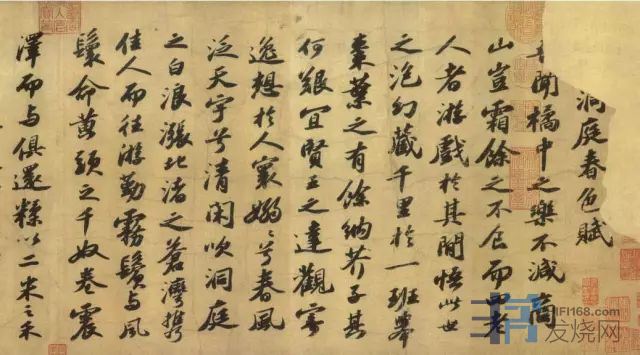 洞庭春色賦
吾聞橘中之樂不減商
山豈霜餘之不食而四老
人者游戲於其間悟此世
之泡幻藏千里於一班舉
棗葉之有餘納芥子其
何艱宜賢王之達觀寄
逸想於人寰嫋〻兮春風
泛天宇兮清閑吹洞庭
之白浪漲北渚之蒼灣攜
佳人而往游勤霧鬢與風
鬟命黃頭之千奴卷震
澤而與俱還糅以二米之禾
HIFI168.com
发烧网